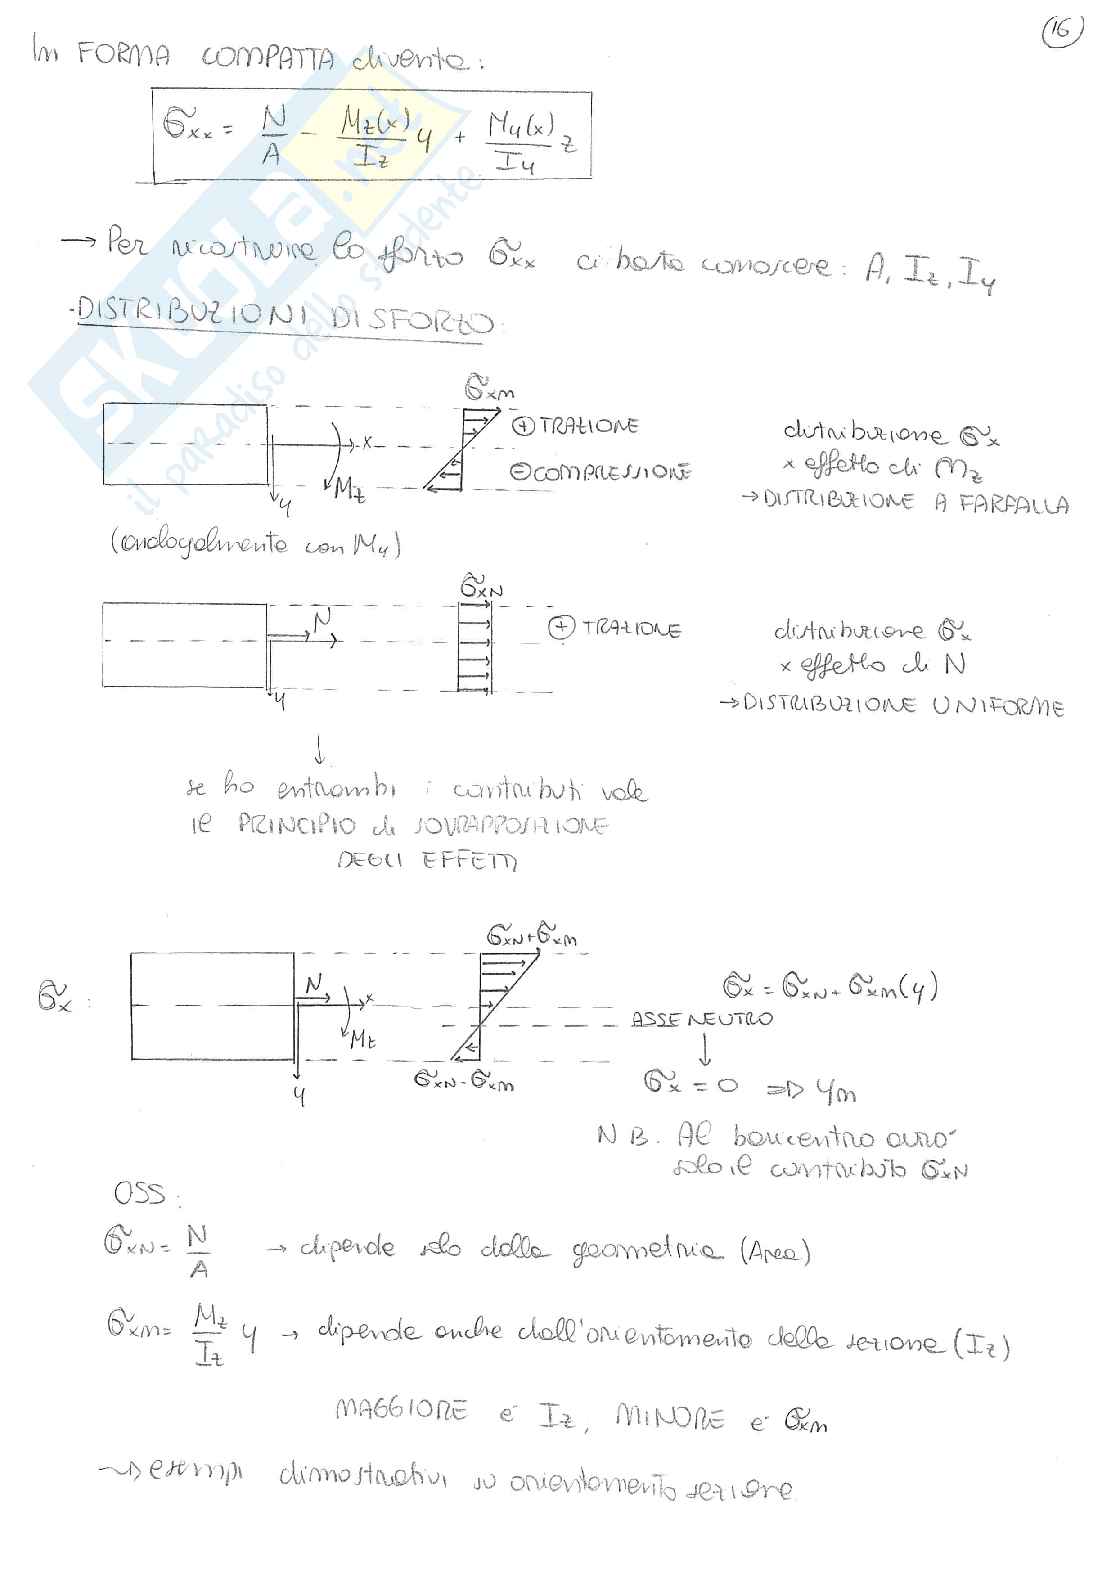 16
In FORMA COMPATTA diventa:
σxx = N/A - Mz(x)/Iz y + My(x)/Iy z
→ Per ricostruire lo sforzo σxx ci basta conoscere: A, Iz, Iy
- DISTRIBUZIONI DI SFORZO
σxM
⊕ TRAZIONE
⊖ COMPRESSIONE
x
Mz
y
distribuzione σx
x effetto di Mz
→ DISTRIBUZIONE A FARFALLA
(analogalmente con My)
σxN
N
y
⊕ TRAZIONE
distribuzione σx
x effetto di N
→ DISTRIBUZIONE UNIFORME
↓
se ho entrambi i contributi vale
il PRINCIPIO di SOVRAPPOSIZIONE
DEGLI EFFETTI
σx:
N
x
Mz
y
σxN+σxM
σxN-σxM
σx = σxN + σxM(y)
ASSE NEUTRO
↓
σx = 0 ⇒ ym
NB. Al baricentro avrò
solo il contributo σxN
OSS:
σxN = N/A → dipende solo dalla geometria (Area)
σxM = Mz/Iz y → dipende anche dall'orientamento della sezione (Iz)
MAGGIORE è Iz, MINORE è σxM
→ esempi dimostrativi su orientamento sezione
SKUOLA.net
il paradiso dello studente